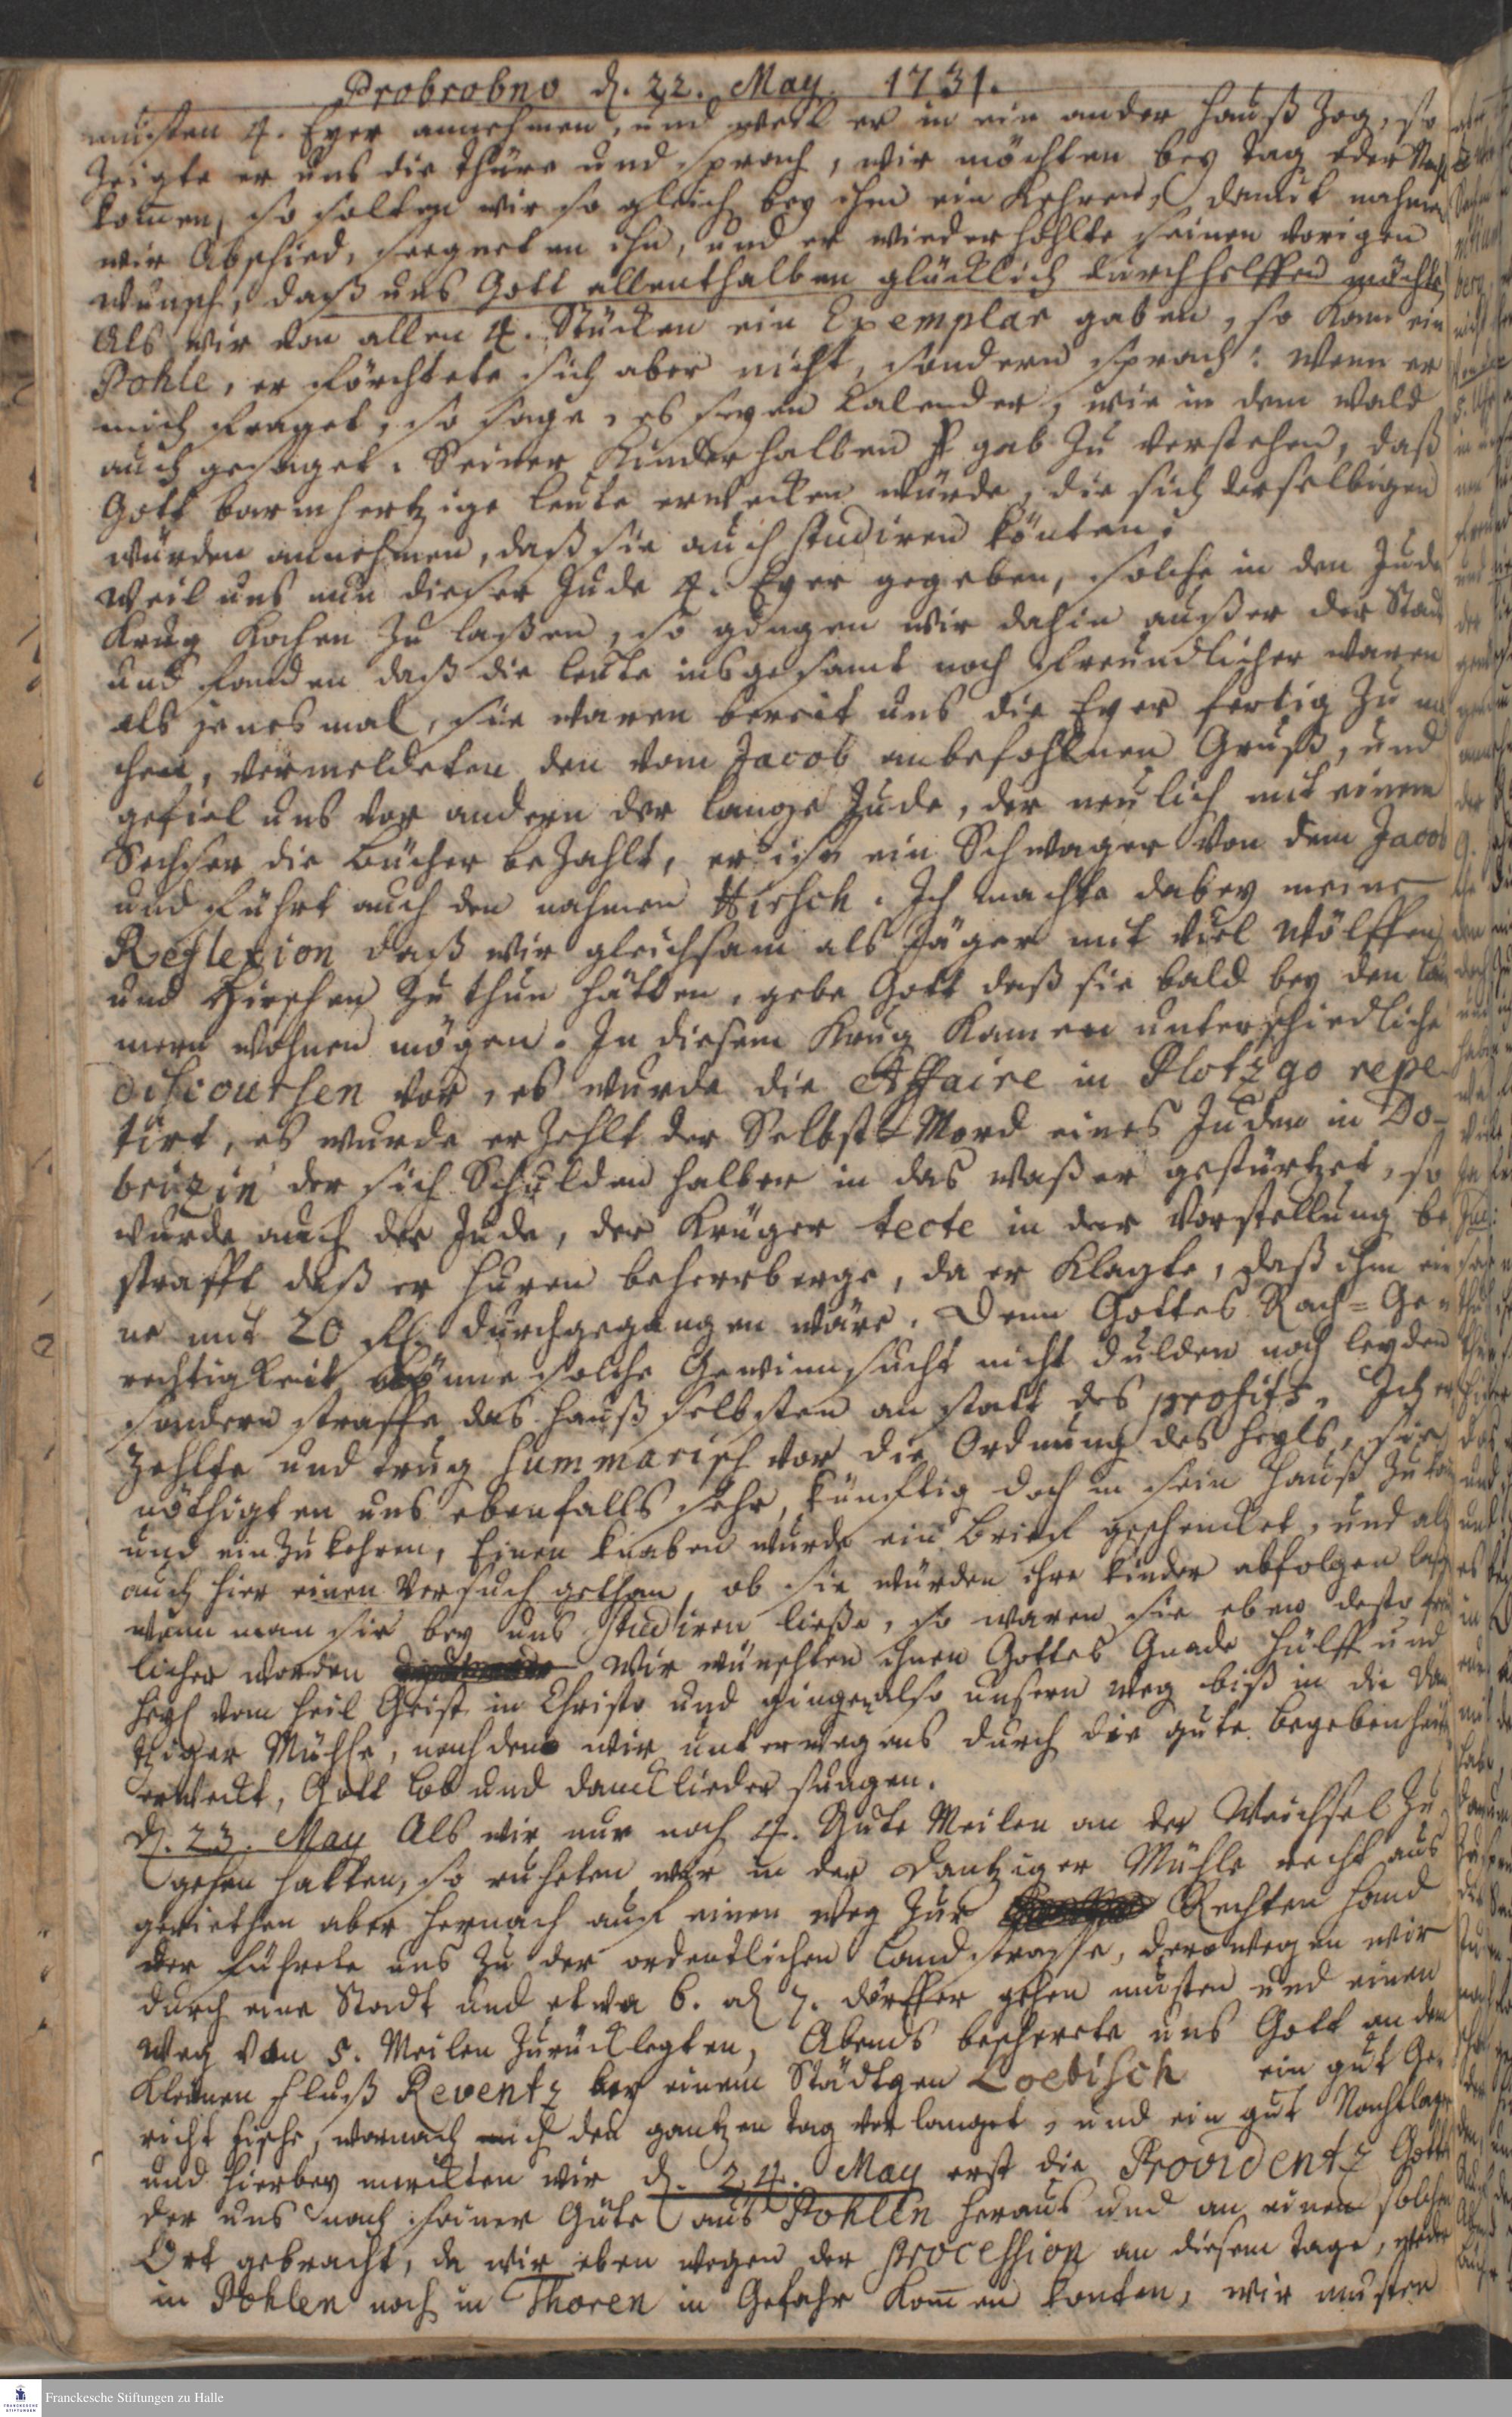 Probrobno d. 22. May. 1731.
musten 4. Eyer annehmen, und weil er in ein ander Hauß zog, so
zeigte er uns die thüre und sprach, wir möchten bey tag oder Nacht
kom̄en, so solten wir so gleich bey ihm ein kehren, damit nahmen
wir Abschied, seegneten ihn, und er wiederhohlte seinen vorigen
wunsch, daß uns Gott allenthalben glücklich durchhelffen möchte,
Als wir von allen 4. Stücken ein Exemplar gaben, so kam ein
Pohle, er förchtete sich aber nicht, sondern sprach: Wenn er
mich fraget, so sage, es seyen Calender, wie in dem Wald
auch gesaget. Seiner Kinder halben gab zu verstehen, daß
Gott barmhertzige leute erwecken würde, die sich derselbigen
würden annehmen, daß sie auch studiren könten.
Weil uns nun dieser Jude 4. Eyer gegeben, solche in den Juden
Krug kochen zu laßen, so gingen wir dahin außer der Stadt
und fanden daß die leute insgesamt noch freundlicher waren
als jenes mal, sie waren bereit uns die Eyer fertig zu ma
chen, vermeldeten den vom Jacob anbefohlnen Gruß, und
gefiel uns vor andern der lange Jude, der neulich mit einem
Sechser die bücher bezahlt, er ist ein Schwager von dem Jacob
und führt auch den nahmen Hirsch. Ich machte dabey meine
Reflexion daß wir gleichsam als Jäger mit viel Wölffen
und Hirschen zu thun hätten, gebe Gott daß sie bald bey den läm
mern wohnen mögen. In diesem Krug kamen unterschiedliche
discoursen vor, es wurde die Affaire in Plotzgo repe
tirt, es wurde erzehlt der Selbst-Mord eines Juden in Do-
brizin der sich Schulden halber in das waßer gestürtzet, so
wurde auch der Jude, der Krüger tecte in der Vorstellung be
strafft daß er huren beherberge, da er klagte, daß ihm ei
ne mit 20 fl. durchgegangen wäre. Denn Gottes Rach-Ge-
rechtigkeit könne solche Gewinnsucht nicht dulden noch leyden
sondern straffe das hauß selbsten an statt des profits. Ich er
zehlte und trug summarisch vor die Ordnung des heyls, sie
nöthigten uns ebenfalls sehr, künfftig doch in sein Hauß zu kom̄
und einzukehren, Einen knaben wurde ein brief geschencket, und als
auch hier einen Versuch gethan, ob sie würden ihre kinder abfolgen laßen
wenn man sie bey uns studiren ließe, so waren sie eben desto freu
licher worden Wir wünschten ihnen Gottes Gnade hülff und
heyl vom heil Geist in Christo und gingen also unsern weg biß in die Dan
tziger Mühle, nachdem wir unterwegens durch die gute begebenheit
erweckt, Gott lob und dancklieder sungen.
d. 23. May Als wir nur noch 4. Gute Meilen an der Weichsel zu
gehen hatten, so ruheten wir in der Dantziger Mühle recht aus
geriethen aber hernach auf einen weg zur Rechten hand
der führete uns zu der ordentlichen landstrasse, derowegen wir
durch eine Stadt und etwa 6. od 7. dörffer gehen musten und einen
weg von 5. Meilen zurücklegten, Abends bescherete uns Gott an dem
kleinen fluß Reventz bey einem Städtgen Loebisch ein gut Ge-
richt fische, wornach mich den gantzen tag verlanget, und ein gut Nachtlager
und hierbey merckten wir d. 24. May erst die Providentz Gottes
der uns nach seiner Güte aus Pohlen heraus und an einen solchen
Ort gebracht, da wir eben wegen der Procession an diesem tage, weder
in Pohlen noch in Thoren in Gefahr kom̄en konten, wir musten
Franckesche Stiftungen zu Halle